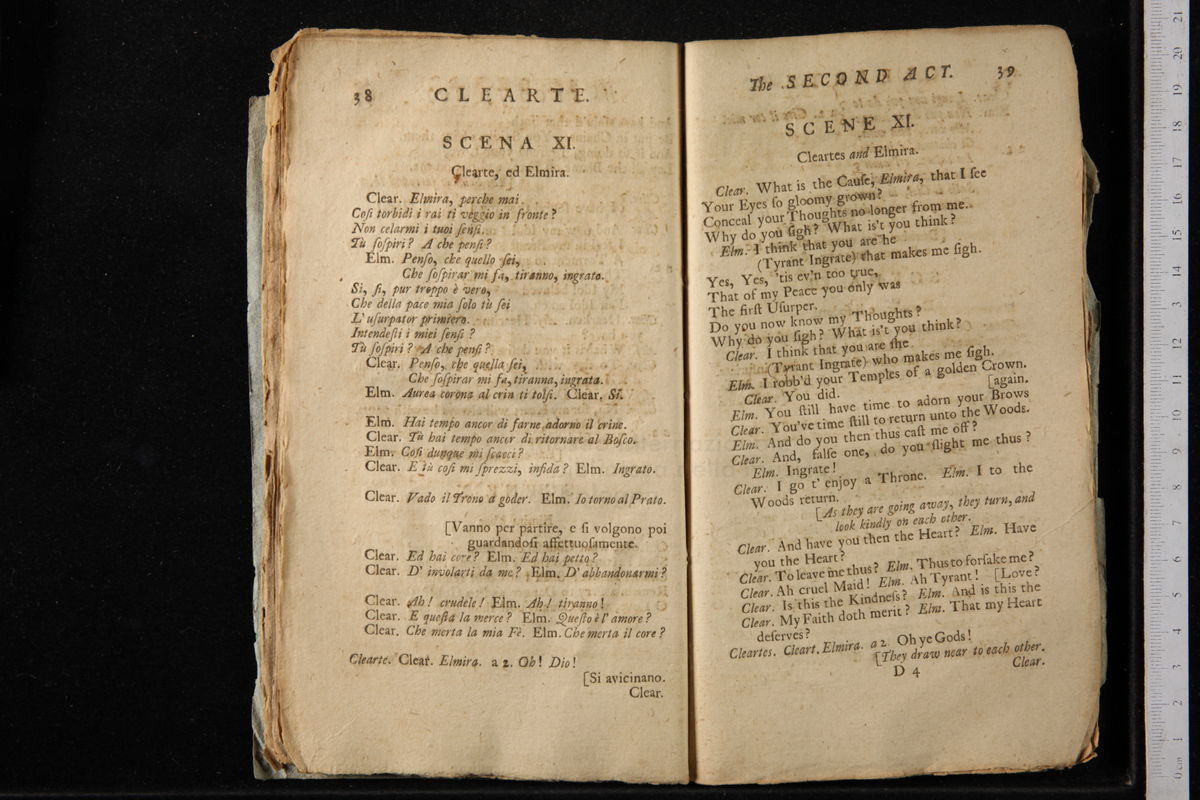 38 CLEARTE.
SCENA XI.
Clearte, ed Elmira.
Clear. Elmira, perche mai
Coſi torbidi i rai ti veggio in fronte?
Non celarmi i tuoi ſenſi.
Tù ſoſpiri? A che penſi?
Elm. Penſo, che quello ſei,
Che ſoſpirar mi fa, tiranno, ingrato.
Si, ſi, pur troppo è vero,
Che della pace mia ſolo tù ſei
L'uſurpator primiero.
Intendeſti i miei ſenſi?
Tù ſoſpiri? A che penſi?
Clear. Penſo, che quella ſei,
Che ſoſpirar mi fa, tiranna, ingrata.
Elm. Aurea corona al crin ti tolſi. Clear. Sì.
Elm. Hai tempo ancor di farne adorno il crine.
Clear. Tù hai tempo ancor di ritornare al Boſco.
Elm. Coſi dunque mi ſcacci?
Clear. E tù coſi mi ſprezzi, infida? Elm. Ingrato.
Clear. Vado il Trono a goder. Elm. Io torno al Prato.
[Vanno per partire, e ſi volgono poi
guardandoſi affettuoſamente.
Clear. Ed hai core? Elm. Ed hai petto?
Clear. D' involarti da me? Elm. D' abbandonarmi?
Clear. Ah! crudele! Elm. Ah! tiranno!
Clear. E queſta la merce? Elm. Queſto è l' amore?
Clear. Che merta la mia Fè. Elm. Che merta il core?
Clearte. Clear. Elmira. a 2. Oh! Dio!
[Si avicinano.
Clear.
The SECOND ACT. 39
SCENE XI.
Cleartes and Elmira.
Clear. What is the Cauſe, Elmira, that I ſee
Your Eyes ſo gloomy grown?
Conceal your Thoughts no longer from me.
Why do you ſigh? What is't you think?
Elm. I think that you are he
(Tyrant Ingrate) that makes me ſigh.
Yes, Yes, 'tis ev'n too true,
That of my Peace you only was
The firſt Uſurper.
Do you now know my Thoughts?
Why do you ſigh? What is't you think?
Clear. I think that you are ſhe
(Tyrant Ingrate) who makes me ſigh.
Elm. I robb'd your Temples of a golden Crown.
Clear. You did. [again.
Elm. You ſtill have time to adorn your Brows
Clear. You've time ſtill to return unto the Woods.
Elm. And do you then thus caſt me off?
Clear. And, falſe one, do you ſlight me thus?
Elm. Ingrate!
Clear. I go t' enjoy a Throne. Elm. I to the
Woods return.
[As they are going away, they turn, and
look kindly on each other.
Clear. And have you then the Heart? Elm. Have
you the Heart?
Clear. To leave me thus? Elm. Thus to forſake me?
Clear. Ah cruel Maid! Elm. Ah Tyrant! [Love?
Clear. Is this the Kindneſs? Elm. And is this the
Clear. My Faith doth merit? Elm. That my Heart
deſerves?
Cleartes. Cleart. Elmira. a 2. Oh ye Gods!
[They draw near to each other.
D 4 Clear.
21
20
19
18
17
16
15
14
13
12
11
10
9
8
7
6
5
4
3
2
1
0 cm